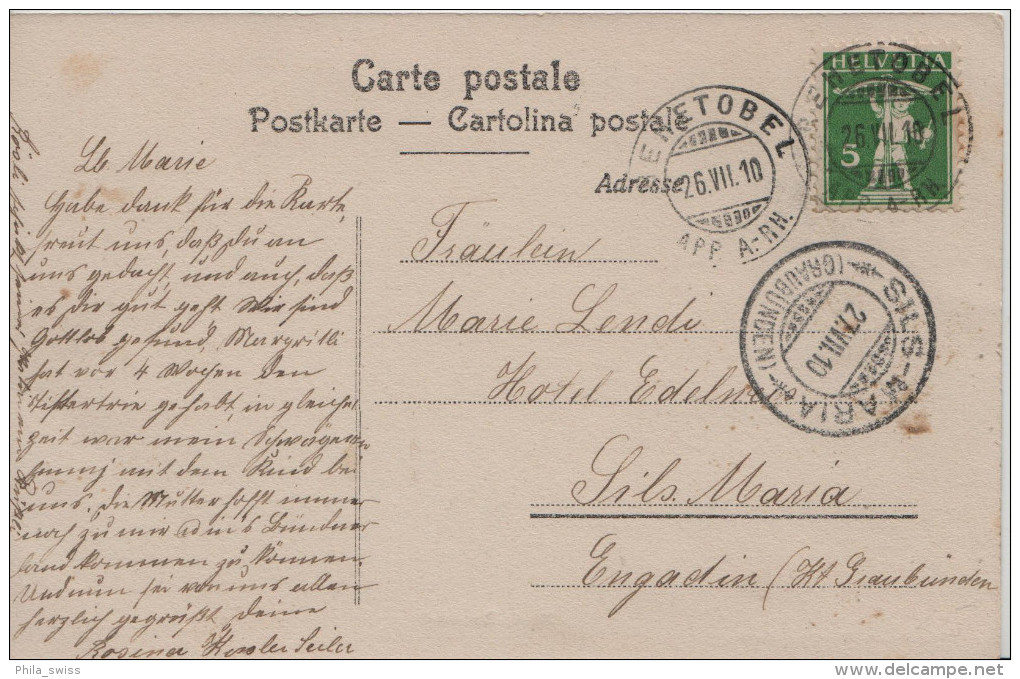 Carte postale
Postkarte — Cartolina postale
Adresse
HELVETIA
5
REHETOBEL
26.VII.10
APP. A.-RH.
REHETOBEL
26.VII.10
A.-RH.
SILS-MARIA
27.VII.10
(GRAUBÜNDEN)
Fräulein
Marie Lendi
Hotel Edelweiss
Sils. Maria
Engadin (Kt. Graubünden
Lb. Marie
Habe dank für die Karte,
freut uns, daß du an
uns gedacht, und auch, daß
es dir gut geht Wir sind
Gottlob gesund, Margritli
hat vor 4 Wochen den
gehabt, in gleicher
zeit war mein Schwägerin
mit dem Kind bei
uns. die Mutter hofft immer
noch zu mir ins Bündner
land kommen zu können.
Und nun sei von uns allen
herzlich gegrüßt deine
Rosina Seiler
Phila_swiss
delcampe.net